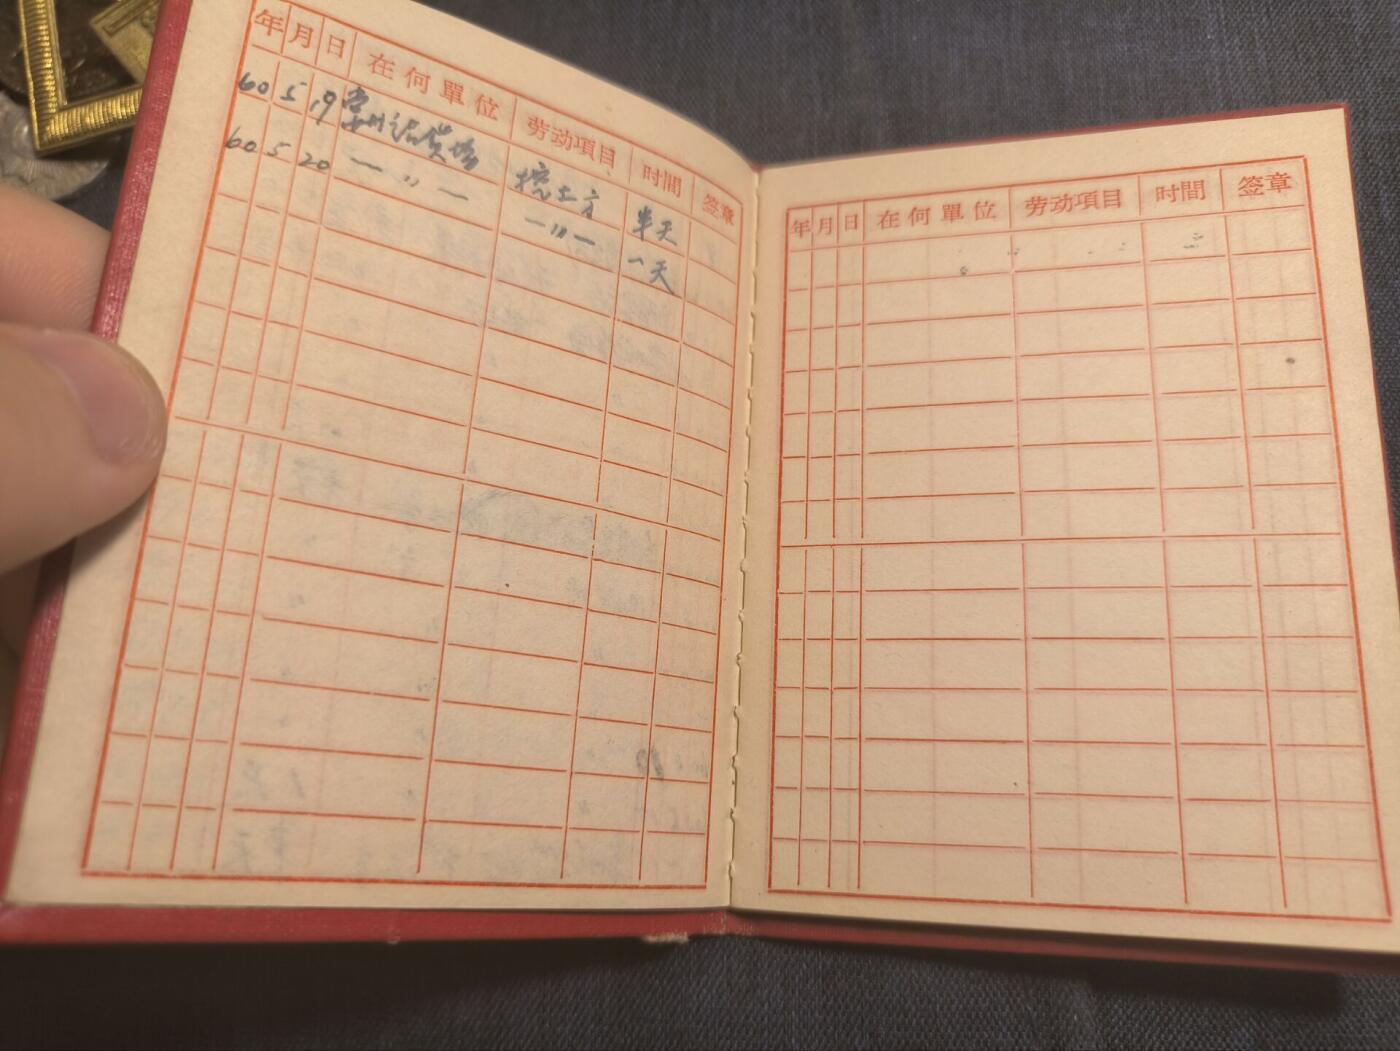 年 月 日 在何單位 劳动項目 时間 签章
60 5 19 常州話货場 挖土方 半天
60 5 20 —〃— —〃— 一天
年 月 日 在何單位 劳动項目 时間 签章